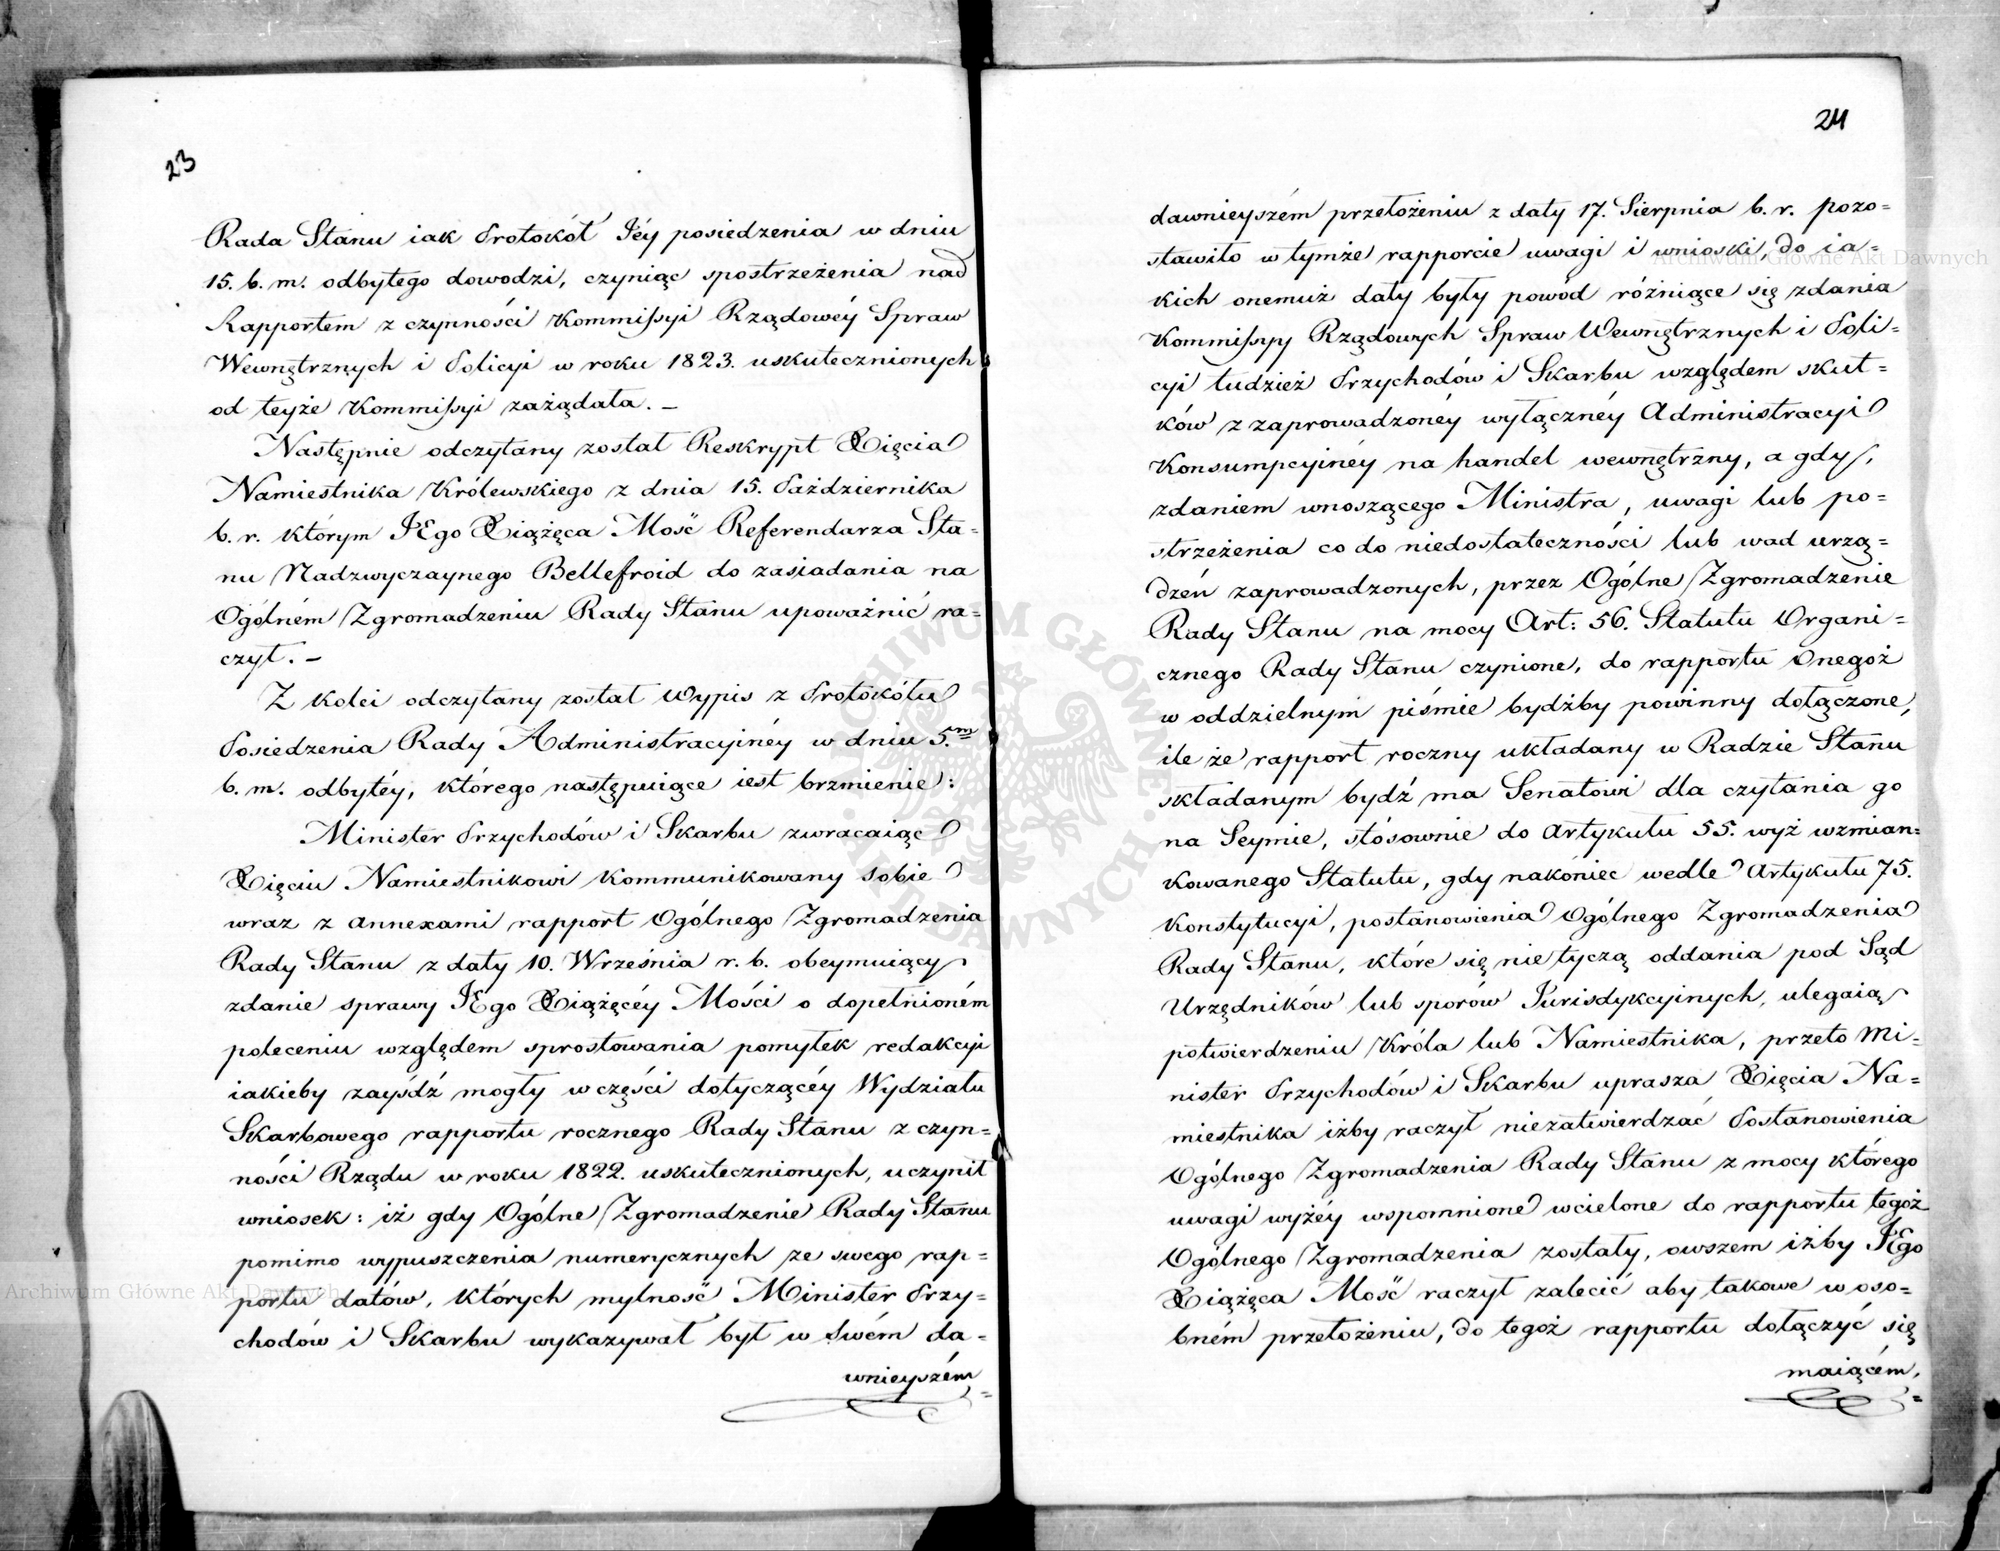 23
Rada Stanu iak Protokół Jéy posiedzenia w dniu
15. b. m. odbytego dowodzi, czyniąc spostrzeżenia nad
Rapportem z czynności Kommissyi Rządowéy Spraw
Wewnętrznych i Policyi w roku 1823. uskutecznionych
od teyże Kommissyi zażądała. –
Następnie odczytany został Reskrypt Xięcia
Namiestnika Królewskiego z dnia 15. Października
b. r. którym JEgo Xiążęca Mość Referendarza Sta=
nu Nadzwyczaynego Bellefroid do zasiadania na
Ogólném Zgromadzeniu Rady Stanu upoważnić ra=
czył. –
Z kolei odczytany został Wypis z Protokółu
Posiedzenia Rady Administracyinéy w dniu 5.m
b. m. odbytéy, którego następuiące iest brzmienie:
Minister Przychodów i Skarbu zwracaiąc
Xięciu Namiestnikowi kommunikowany sobie
wraz z annexami rapport Ogólnego Zgromadzenia
Rady Stanu z daty 10. Września r. b. obeymuiący
zdanie sprawy JEgo Xiążęcéy Mości o dopełnioném
poleceniu względem sprostowania pomyłek redakcyi
iakieby zayśdź mogły w części dotyczącéy Wydziału
Skarbowego rapportu rocznego Rady Stanu z czyn=
ności Rządu w roku 1822. uskutecznionych, uczynił
wniosek: iż gdy Ogólne Zgromadzenie Rady Stanu
pomimo wypuszczenia numerycznych ze swego rap=
portu datów, których mylność Minister Przy=
chodów i Skarbu wykazywał był w swém da=
wnieyszém
24
dawnieyszém przełożeniu z daty 17. Sierpnia b. r. pozo=
stawiło w tymże rapporcie uwagi i wnioski, do ia=
kich onemuż dały były powód różniące się zdania
Kommissyy Rządowych Spraw Wewnętrznych i Poli=
cyi tudzież Przychodów i Skarbu względem skut=
ków z zaprowadzonéy wyłącznéy Administracyi
Konsumpcyinéy na handel wewnętrzny, a gdy,
zdaniem wnoszącego Ministra, uwagi lub po=
strzeżenia co do niedostateczności lub wad urzą=
dzeń zaprowadzonych, przez Ogólne Zgromadzenie
Rady Stanu na mocy Art: 56. Statutu Organi=
cznego Rady Stanu czynione, do rapportu Onegoż
w oddzielnym piśmie bydźby powinny dołączone,
ile że rapport roczny układany w Radzie Stanu
składanym bydź ma Senatowi dla czytania go
na Seymie, stósownie do Artykułu 55. wyż wzmian=
kowanego Statutu, gdy nakoniec wedle Artykułu 75.
Konstytucyi, postanowienia Ogólnego Zgromadzenia
Rady Stanu, które się nie tyczą oddania pod Sąd
Urzędników lub sporów Jurisdykcyinych, ulegaią
potwierdzeniu Króla lub Namiestnika, przeto Mi=
nister Przychodów i Skarbu uprasza Xięcia Na=
miestnika iżby raczył niezatwierdzać Postanowienia
Ogólnego Zgromadzenia Rady Stanu z mocy którego
uwagi wyżéy wspomnione wcielone do rapportu tegoż
Ogólnego Zgromadzenia zostały, owszem iżby JEgo
Xiążęca Mość raczył zalecić aby takowe w oso=
bném przełożeniu, do tegoż rapportu dołączyć się
maiącém,
Archiwum Główne Akt Dawnych
Archiwum Główne Akt Dawnych
ARCHIWUM GŁÓWNE AKT DAWNYCH